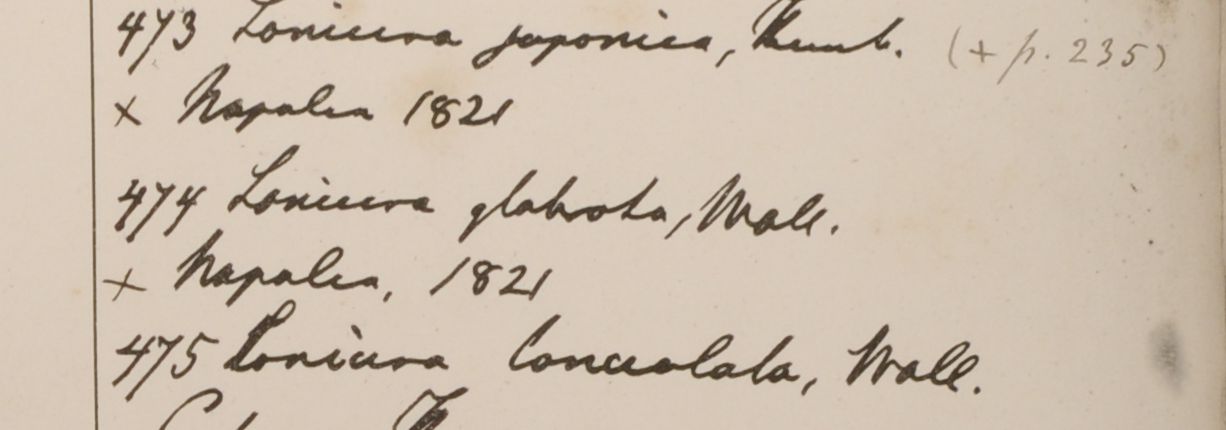 473 Lonicera japonica, Thunb. (+ p. 235)
× Napalia 1821
474 Lonicera glabrata, Wall.
+ Napalia, 1821
475 Lonicera lanceolata, Wall.